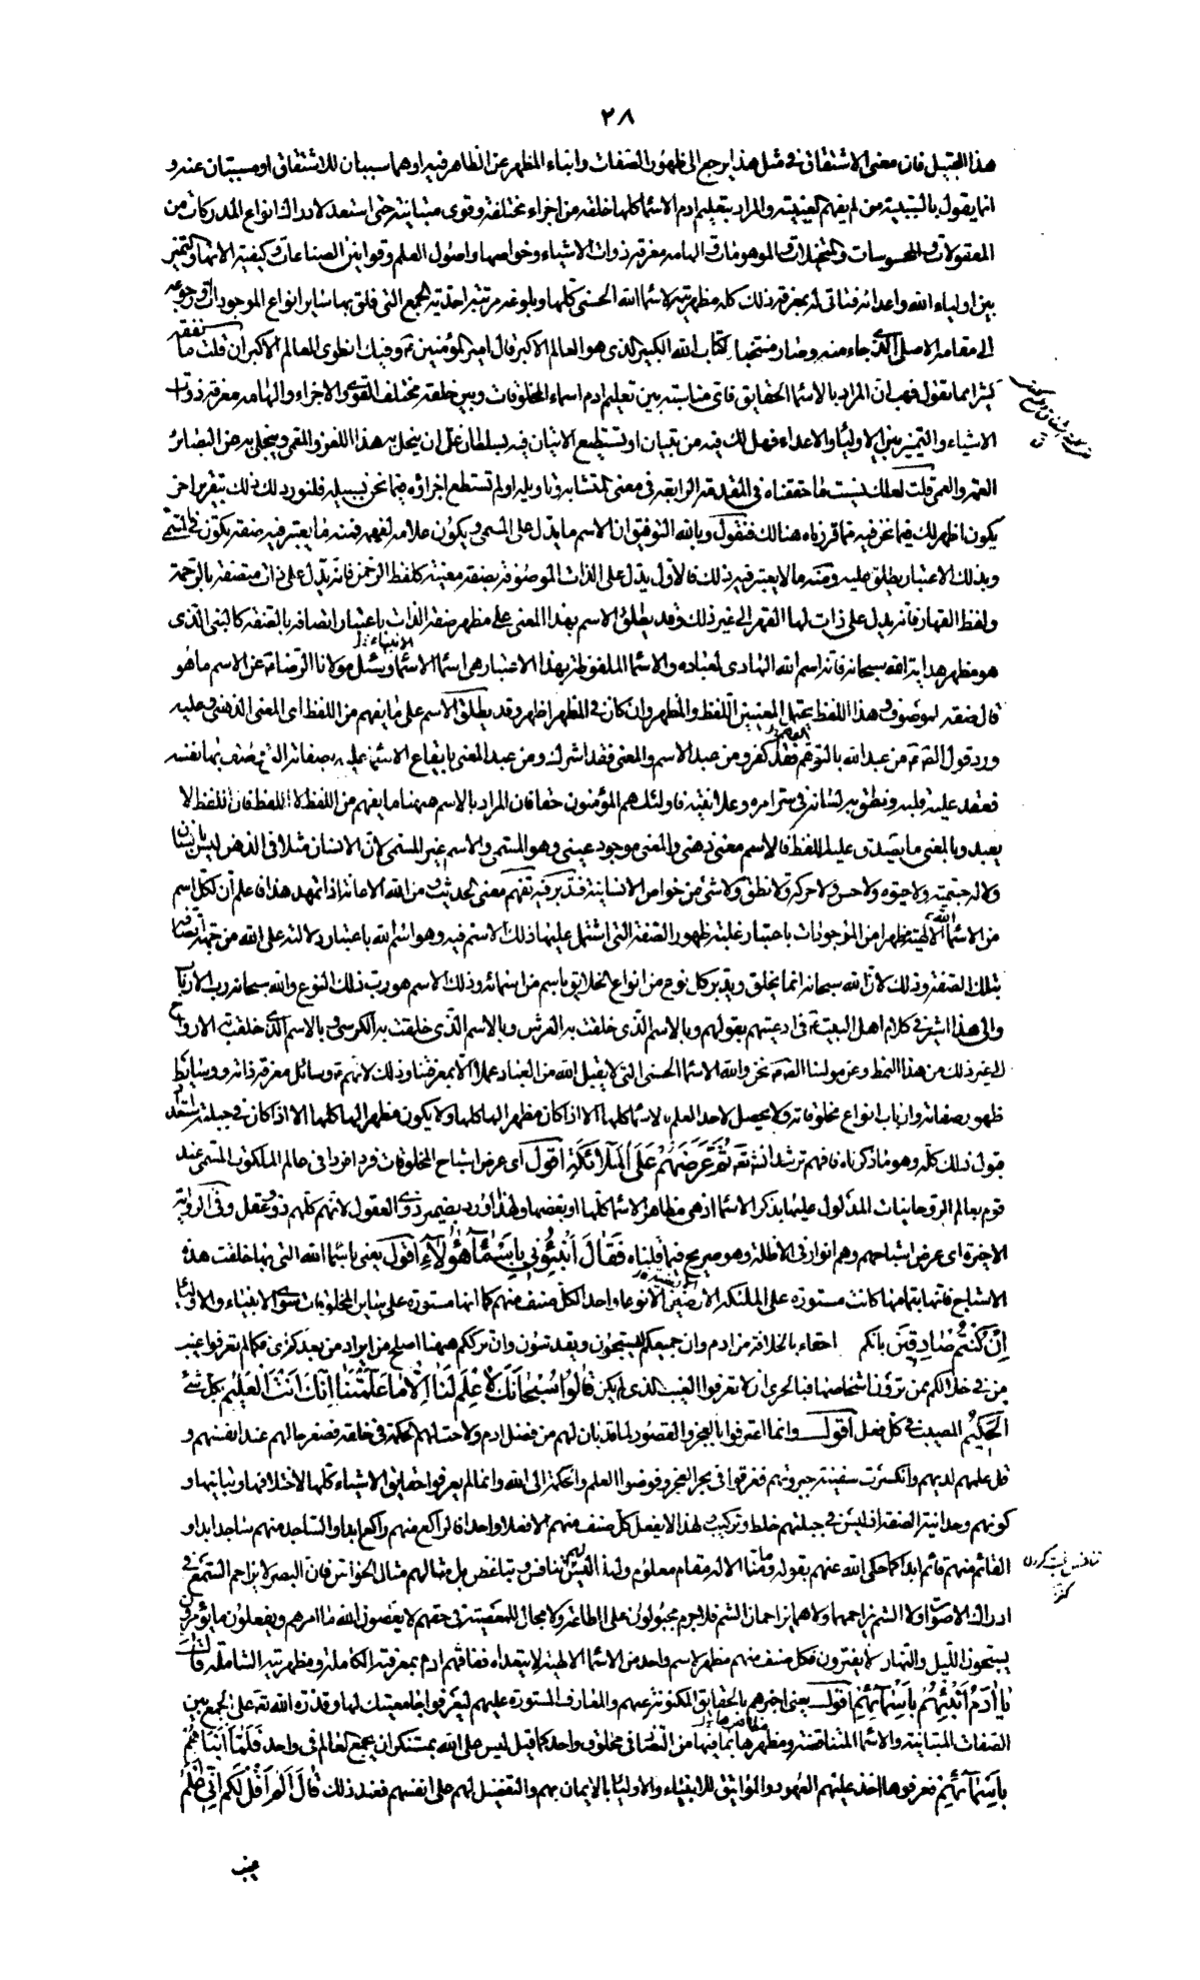 ٢٨
هذا القبيل فان معنى الاشتقاق في مثل هذا يرجع الى ظهور الصفات وانباء المظهر عن الظاهر فيه او هما سببان للاشتقاق او مسببان عنه و
انما يقول بالسببية من لم يفهم العينية والمراد بتعليم ادم الاسماء كلها خلقه من اجزاء مختلفة وقوى متباينة حتى استعد لادراك انواع المدركات من
المعقولات والمحسوسات والمتخيلات والموهومات والهامه معرفة ذوات الاشياء وخواصها واصول العلم وقوانين الصناعات وكيفية الاتها والتميز
بين اولياء الله واعدائه فتاتى له بمعرفة ذلك كله مظهريته لاسماء الله الحسنى كلها وبلوغه مرتبة احدية الجمع التي فاق بها ساير انواع الموجودات ورجوعه
الى مقامه الاصلى الذي جاء منه وصار منتخبا لكتاب الله الكبير الذي هو العالم الاكبر قال امير المؤمنين ع وفيك انطوى العالم الاكبر ان قلت ما نفقه
كثيرا مما تقول فهب ان المراد بالاسماء الحقايق فاى مناسبة بين تعليم ادم اسماء المخلوقات وبين خلقه مختلف القوى والاجزاء والهامه معرفة ذوات
الاشياء والتميز بين الاولياء والاعداء فهل لك فيه من تبيان او تستطيع الاتيان فيه بسلطان عل ان ينحل به هذا اللغز والمعمى وينجلى به عن البصائر
العمه والعمى قلت لعلك نسيت ما حققناه في المقدمة الرابعة في معنى المتشابه وتاويله او لم تستطع اجراؤه فيما نحن بسبيله فلنورد لك ذلك بتقرير اخر
يكون اظهر لك فيما نحن فيه مما قررناه هنالك فنقول وبالله التوفيق ان الاسم ما يدل على المسمى ويكون علامة لفهمه فمنه ما يعتبر فيه صفة تكون في المسمى
وبذلك الاعتبار يطلق عليه ومنه ما لا يعتبر فيه ذلك فالاول يدل على الذات الموصوفة بصفة معينة كلفظ الرحمن فانه يدل على ذات متصفة بالرحمة
ولفظ القهار فانه يدل على ذات لها القهر الى غير ذلك وقد يطلق الاسم بهذا المعنى على مظهر صفة الذات باعتبار اتصافه بالصفة كالنبى الذي
هو مظهر هداية الله سبحانه فانه اسم الله الهادى لعباده والاسماء الملفوظة بهذا الاعتبار هي اسماء الاسماء وسئل مولانا الرضا ع عن الاسم ما هو
قال صفة لموصوف وهذا اللفظ يحتمل المعنيين اللفظ والمظهر وان كان في المظهر اظهر وقد يطلق الاسم على ما يفهم من اللفظ اى المعنى الذهنى وعليه
ورد قول الص ع من عبد الله بالتوهم فقد كفر ومن عبد الاسم والمعنى فقد اشرك ومن عبد المعنى بايقاع الاسماء عليه بصفاته التي وصف بها نفسه
فعقد عليه قلبه ونطق به لسانه في سر امره وعلانيته فاولئك هم المؤمنون حقا فان المراد بالاسم ههنا ما يفهم من اللفظ لا اللفظ فان اللفظ لا
يعبد وبالمعنى ما يصدق عليه اللفظ فالاسم معنى ذهنى والمعنى موجود عينى وهو المسمى والاسم غير المسمى لان الانسان مثلا في الذهن ليس بانسان
ولا له جسمية ولا حيوة ولا حس ولا حركة ولا نطق ولا شئ من خواص الانسانية فتدبر فيه تفهم معنى الحديث ومن الله الاعانة اذا تمهد هذا فاعلم ان لكل اسم
من الاسماء الالهية مظهرا من الموجودات باعتبار غلبة ظهور الصفة التي اشتمل عليها ذلك الاسم فيه وهو اسم الله باعتبار دلالته على الله من جهة اتصافه
بتلك الصفة وذلك لان الله سبحانه انما يخلق ويدبر كل نوع من انواع الخلايق باسم من اسمائه وذلك الاسم هو رب ذلك النوع والله سبحانه رب الارباب
والى هذا اشير في كلام اهل البيت ع في ادعيتهم بقولهم وبالاسم الذي خلقت به العرش وبالاسم الذي خلقت به الكرسى وبالاسم الذي خلقت به الارواح
الى غير ذلك من هذا النمط وعن مولنا الص ع نحن والله الاسماء الحسنى التي لا يقبل الله من العباد عملا الا بمعرفتنا وذلك لانهم ع وسائل معرفة ذاته ووسايط
ظهور صفاته وارباب انواع مخلوقاته ولا يحصل لاحد العلم بالاسماء كلها الا اذا كان مظهرا لها كلها ولا يكون مظهرا لها كلها الا اذا كان في جبلته استعداد
قبول ذلك كله وهو ما ذكرناه فافهم ترشد انشا الله تع ثُمَّ عَرَضَهُمْ عَلَى الْمَلَائِكَةِ اقول اى عرض اشباح المخلوقات فردا فردا في عالم الملكوت المسمى عند
قوم بعالم الروحانيات المدلول عليها بذكر الاسماء اذ هى مظاهر الاسماء كلها او بعضها ولهذا اورد بضمير ذوى العقول لانهم كلهم ذوو عقل وفي الرواية
الاخيرة اى عرض اشباحهم وهم انوار في الاظلة وهو صريح فيما قلناه فَقَالَ أَنْبِئُونِي بِأَسْمَاءِ هَؤُلَاءِ اقول يعنى باسماء الله التي بها خلقت هذه
الاشباح فانها بتمامها كانت مستورة على الملئكة الارضيين الا نوعا واحدا لكل صنف منهم كما انها مستورة على ساير المخلوقات سوى الانبياء والاولياء
إِنْ كُنْتُمْ صَادِقِينَ بانكم احقاء بالخلافة من ادم وان جميعكم يسبحون ويقدسون وان ترككم ههنا اصلح من ايراد من بعدكم فكما لم تعرفوا غيب
من في خلالكم بمن ترون اشخاصها فبالحرى ان لا تعرفوا الغيب الذي لم يكن قَالُوا سُبْحَانَكَ لَا عِلْمَ لَنَا إِلَّا مَا عَلَّمْتَنَا إِنَّكَ أَنْتَ الْعَلِيمُ بكل شئ
الْحَكِيمُ المصيب في كل فعل اقول وانما اعترفوا بالعجز والقصور لما قد بان لهم من فضل ادم ولاحت لهم الحكمة في خلقه فصغر حالهم عند انفسهم و
قل علمهم لديهم وانكسرت سفينة جبروتهم فغرقوا في بحر العجز وفوضوا العلم والحكمة الى الله وانما لم يعرفوا حقايق الاشياء كلها لاختلافها وتباينها و
كونهم وحدانية الصفة اذ ليس في جبلتهم خلط وتركيب ولهذا لا يفعل كل صنف منهم الا فعلا واحدا فالراكع منهم راكع ابدا والساجد منهم ساجد ابدا و
القائم منهم قائم ابدا كما حكى الله عنهم بقوله وما منا الا له مقام معلوم ولهذا ليس لهم تنافس وتباغض بل مثالهم مثال الحواس فان البصر لا يزاحم السمع في
ادراك الاصوات ولا الشم يزاحمهما ولا هما يزاحمان الشم فلاجرم مجبولون على الطاعة ولا مجال للمعصية في حقهم لا يعصون الله ما امرهم ويفعلون ما يؤمرون
يسبحون الليل والنهار لا يفترون فكل صنف منهم مظهر لاسم واحد من الاسماء الالهية لا يتعداه ففاقهم ادم بمعرفته الكاملة ومظهريته الشاملة قَالَ
يَا آدَمُ أَنْبِئْهُمْ بِأَسْمَائِهِمْ اقول يعنى اخبرهم بالحقايق المكنونة عنهم والمعارف المستورة عليهم ليعرفوا جامعيتك لها وقدرة الله تع على الجمع بين
الصفات المتباينة والاسماء المتناقضة ومظاهرها بما فيها من التضاد في مخلوق واحد كما قيل ليس على الله بمستنكر ان يجمع العالم في واحد فَلَمَّا أَنْبَأَهُمْ
بِأَسْمَائِهِمْ فعرفوها اخذ عليهم العهود والمواثيق للانبياء والاولياء بالايمان بهم والتفضيل لهم على انفسهم فعند ذلك قَالَ أَلَمْ أَقُلْ لَكُمْ إِنِّي أَعْلَمُ
غيب